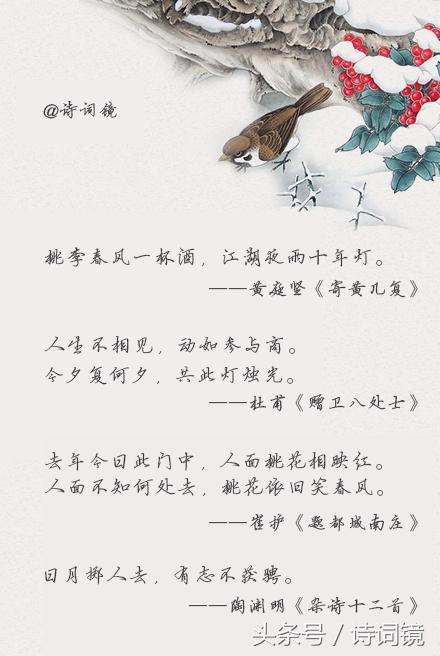 @诗词镜
桃李春风一杯酒，江湖夜雨十年灯。
——黄庭坚《寄黄几复》
人生不相见，动如参与商。
今夕复何夕，共此灯烛光。
——杜甫《赠卫八处士》
去年今日此门中，人面桃花相映红。
人面不知何处去，桃花依旧笑春风。
——崔护《题都城南庄》
日月掷人去，有志不获骋。
——陶渊明《杂诗十二首》
头条号 / 诗词镜